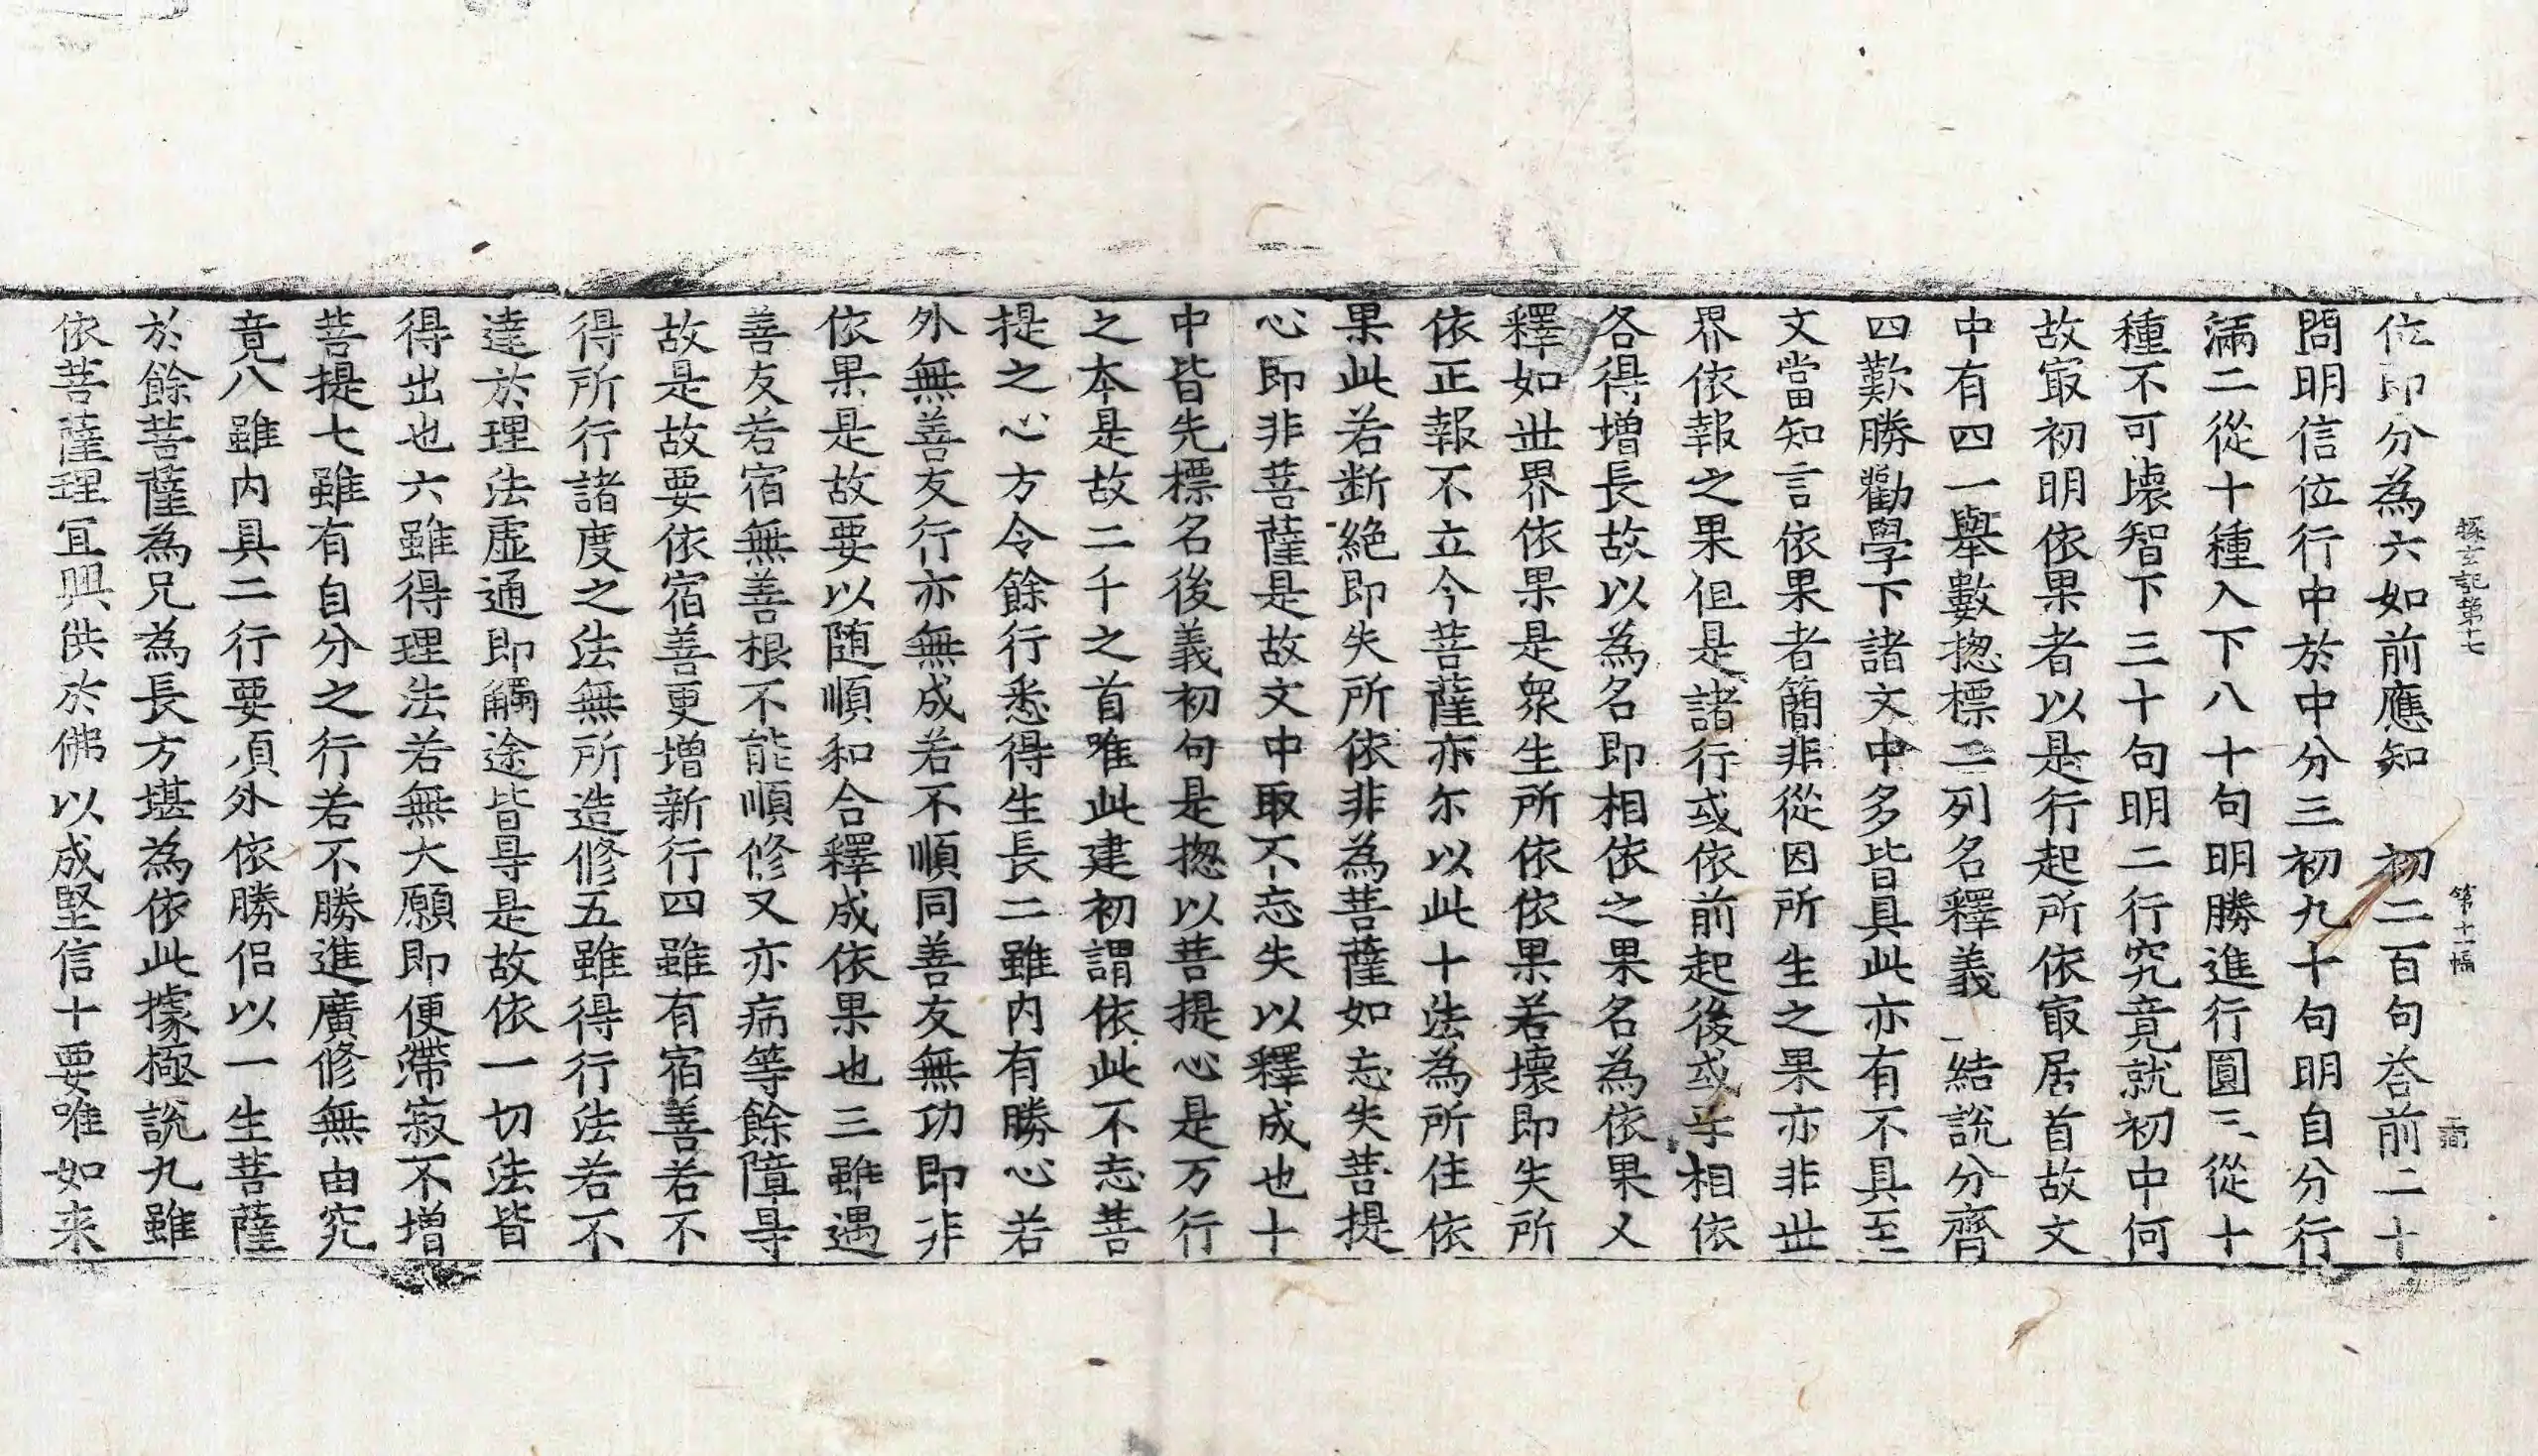 探玄記第十七
第十一幅
位即分為六如前應知　初二百句荅前二十
問明信位行中於中分三初九十句明自分行
滿二從十種入下八十句明勝進行圓三從十
種不可壞智下三十句明二行究竟就初中何
故㝡初明依果者以是行起所依㝡居首故文
中有四一舉數揔標二列名釋義　結說分齊
四歎勝勸學下諸文中多皆具此亦有不具至
文當知言依果者簡非從因所生之果亦非世
界依報之果但是諸行或依前起後或㸦相依
各得增長故以為名即相依之果名為依果又
釋如世界依果是衆生所依依果若壞即失所
依正報不立今菩薩亦尓以此十法為所住依
果此若断絶即失所依非為菩薩如忘失菩提
心即非菩薩是故文中取不忘失以釋成也十
中皆先標名後義初句是揔以菩提心是万行
之本是故二千之首唯此建初謂依此不忘菩
提之心方令餘行悉得生長二雖内有勝心若
外無善友行亦無成若不順同善友無功即非
依果是故要以随順和合釋成依果也三雖遇
善友若宿無善根不能順修又亦病等餘障㝵
故是故要依宿善更增新行四雖有宿善若不
得所行諸度之法無所造修五雖得行法若不
達於理法虛通即觸途皆㝵是故依一切法皆
得出也六雖得理法若無大願即便滯寂不增
菩提七雖有自分之行若不勝進廣修無由究
竟八雖内具二行要湏外依勝侣以一生菩薩
於餘菩薩為兄為長方堪為依此據極說九雖
依菩薩理冝興供於佛以成堅信十要唯如来